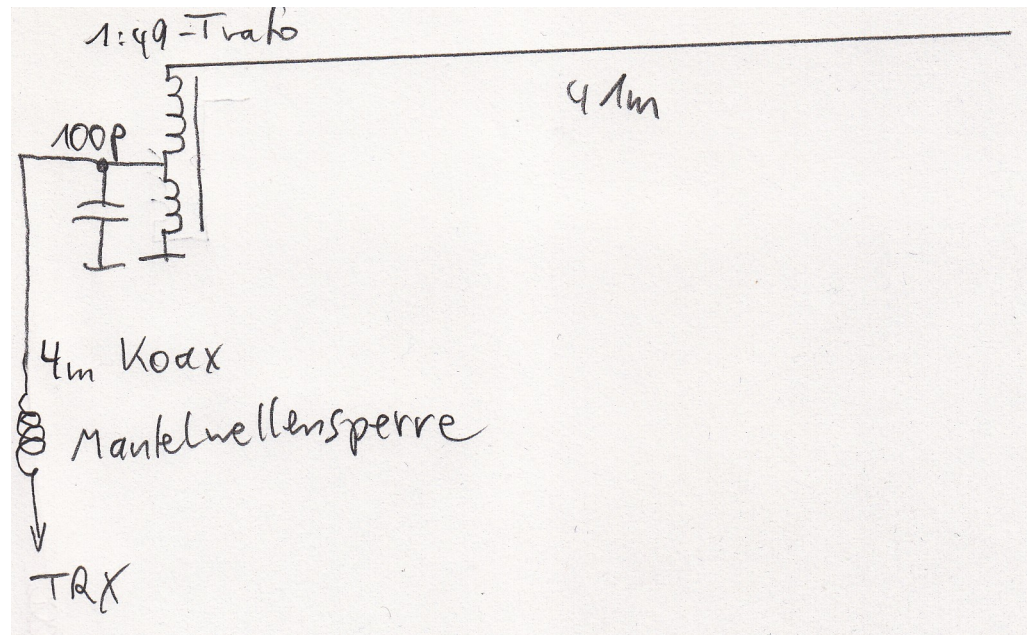 1:49-Trafo
41m
100p
4m Koax
Mantelwellensperre
TRX